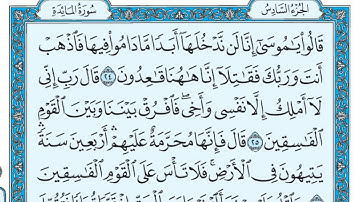 الجزء السادس
سورة المائدة
قَالُوا۟ يَـٰمُوسَىٰٓ إِنَّا لَن نَّدْخُلَهَآ أَبَدًا مَّا دَامُوا۟ فِيهَا فَٱذْهَبْ
أَنتَ وَرَبُّكَ فَقَـٰتِلَآ إِنَّا هَـٰهُنَا قَـٰعِدُونَ ٢٤ قَالَ رَبِّ إِنِّى
لَآ أَمْلِكُ إِلَّا نَفْسِى وَأَخِى ۖ فَٱفْرُقْ بَيْنَنَا وَبَيْنَ ٱلْقَوْمِ
ٱلْفَـٰسِقِينَ ٢٥ قَالَ فَإِنَّهَا مُحَرَّمَةٌ عَلَيْهِمْ ۛ أَرْبَعِينَ سَنَةً ۛ
يَتِيهُونَ فِى ٱلْأَرْضِ ۚ فَلَا تَأْسَ عَلَى ٱلْقَوْمِ ٱلْفَـٰسِقِينَ